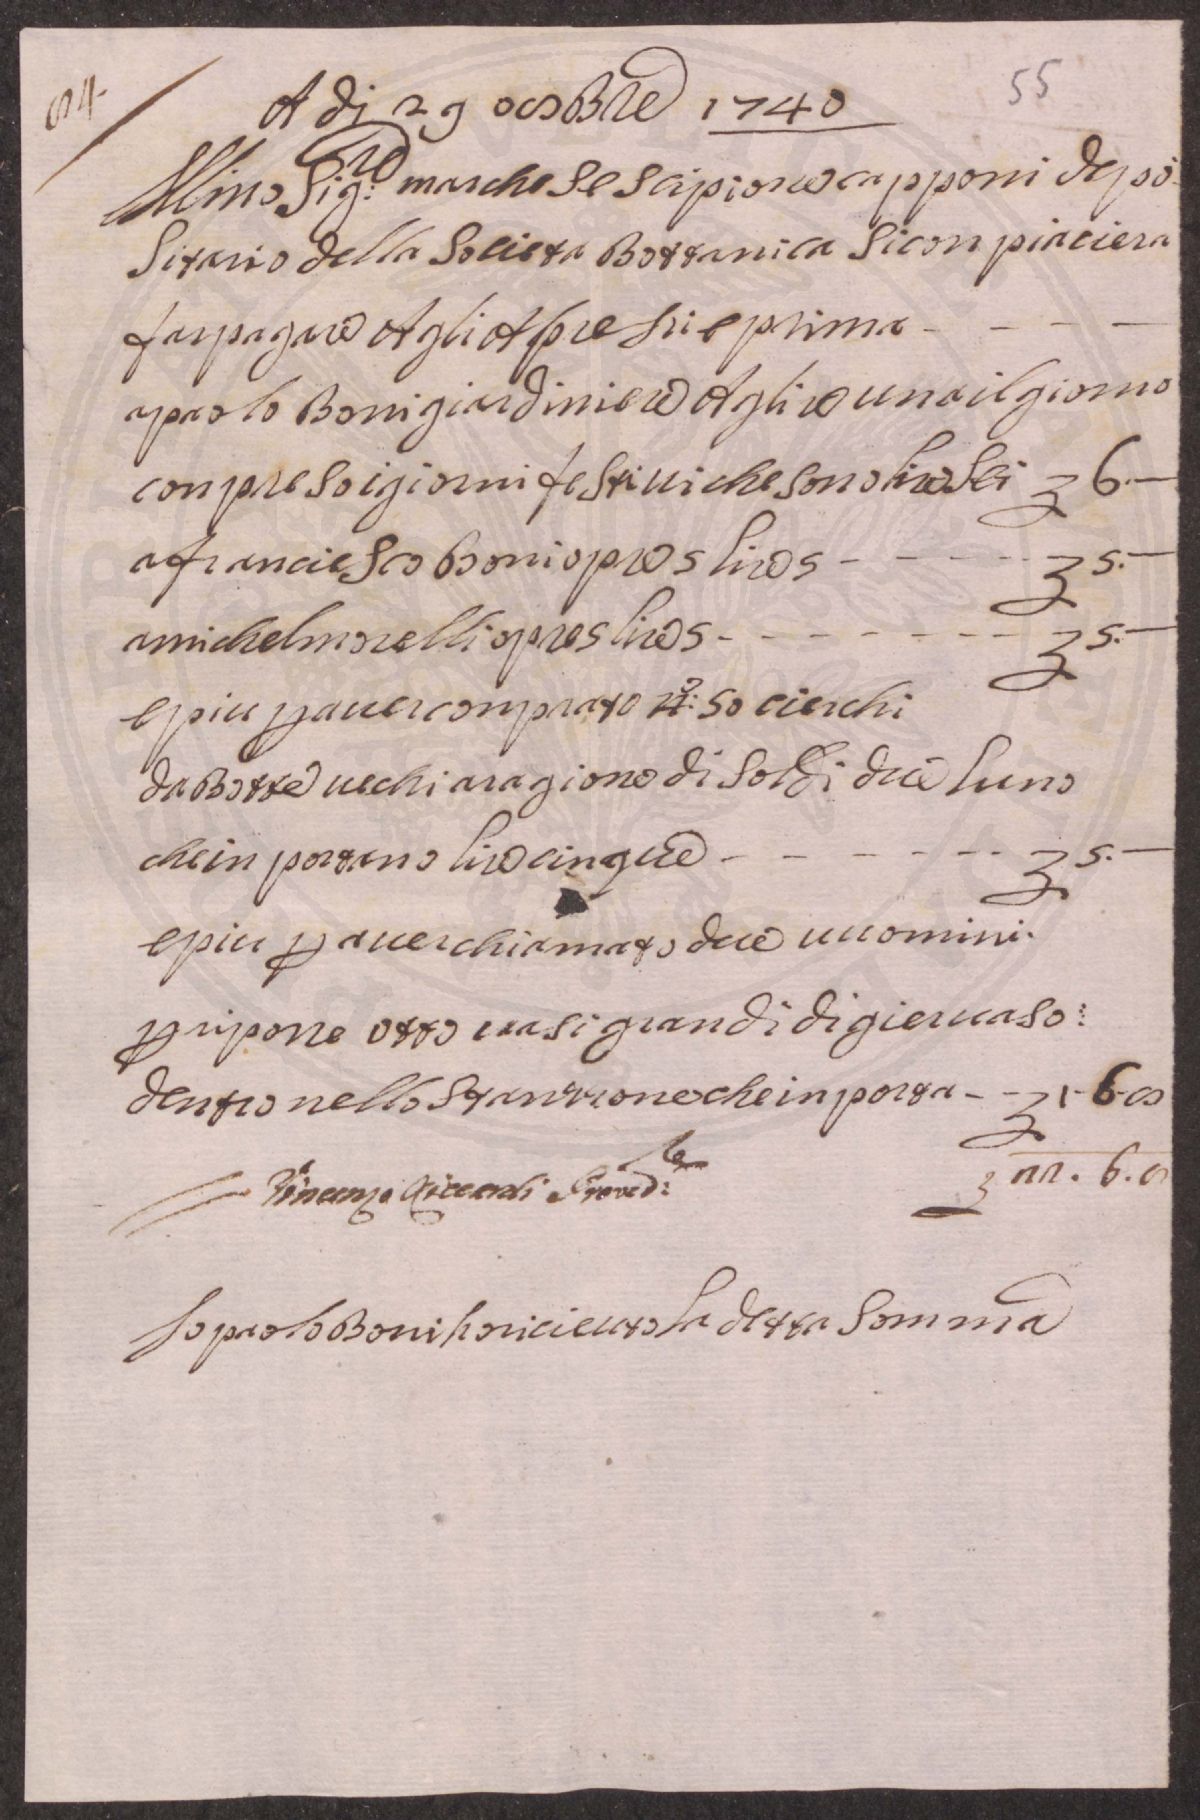 54
55
A di 29 ottobre 1740
Illmo Sig:re marchese scipione capponi depo
sitario della Societa Bottanica si conpiaciera
far pagare Agli Apresi e prima - - - -
a paolo Boni giardiniere A lire una il giorno
conpreso i giorni festiui che sono lire sei £ 6.—
a franciesco boni opre 5 lire 5 - - - - £ 5.—
a michel morelli opre 5 lire 5 - - - - - - - £ 5.—
e piu p auer conprato n:o 50 cierchi
da Botte uechi a ragione di soldi due luno
che in portano lire cinque - - - - - - £ 5.—
e piu p auer chiamato due uuomini
p riporre otto uasi grandi di gieruaso:
dentro nello stanzione che in porta - - £ 1-6-8
£ 22. 6. 8
Vincenzo Riccardi Proved:re
Io paolo Boni ho riceuto la detta Somma